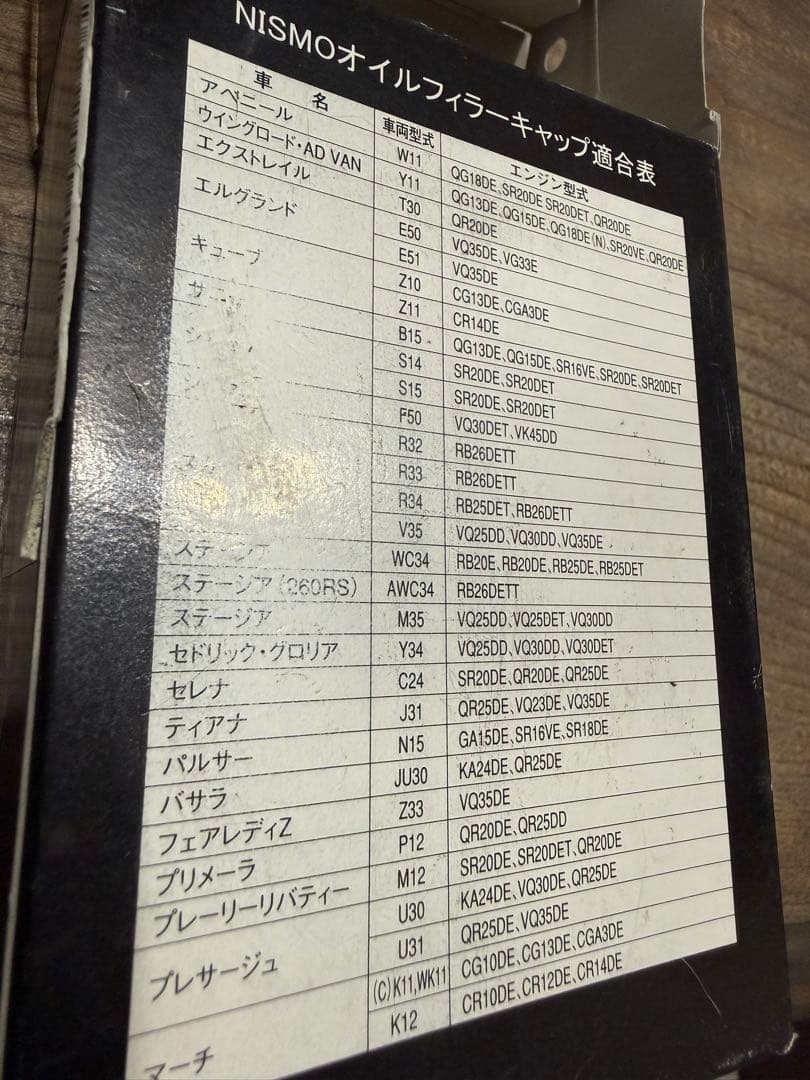 NISMOオイルフィラーキャップ適合表
車 名 車両型式 エンジン型式
アベニール W11 QG18DE、SR20DE SR20DET、QR20DE
ウイングロード・AD VAN Y11 QG13DE、QG15DE、QG18DE(N)、SR20VE、QR20DE
エクストレイル T30 QR20DE
エルグランド E50 VQ35DE、VG33E
E51 VQ35DE
キューブ Z10 CG13DE、CGA3DE
Z11 CR14DE
B15 QG13DE、QG15DE、SR16VE、SR20DE、SR20DET
S14 SR20DE、SR20DET
S15 SR20DE、SR20DET
F50 VQ30DET、VK45DD
R32 RB26DETT
R33 RB26DETT
R34 RB25DET、RB26DETT
V35 VQ25DD、VQ30DD、VQ35DE
ステージア WC34 RB20E、RB20DE、RB25DE、RB25DET
ステージア(260RS) AWC34 RB26DETT
ステージア M35 VQ25DD、VQ25DET、VQ30DD
セドリック・グロリア Y34 VQ25DD、VQ30DD、VQ30DET
セレナ C24 SR20DE、QR20DE、QR25DE
ティアナ J31 QR25DE、VQ23DE、VQ35DE
パルサー N15 GA15DE、SR16VE、SR18DE
バサラ JU30 KA24DE、QR25DE
フェアレディZ Z33 VQ35DE
プリメーラ P12 QR20DE、QR25DD
プレーリーリバティー M12 SR20DE、SR20DET、QR20DE
プレサージュ U30 KA24DE、VQ30DE、QR25DE
U31 QR25DE、VQ35DE
マーチ (C)K11,WK11 CG10DE、CG13DE、CGA3DE
K12 CR10DE、CR12DE、CR14DE